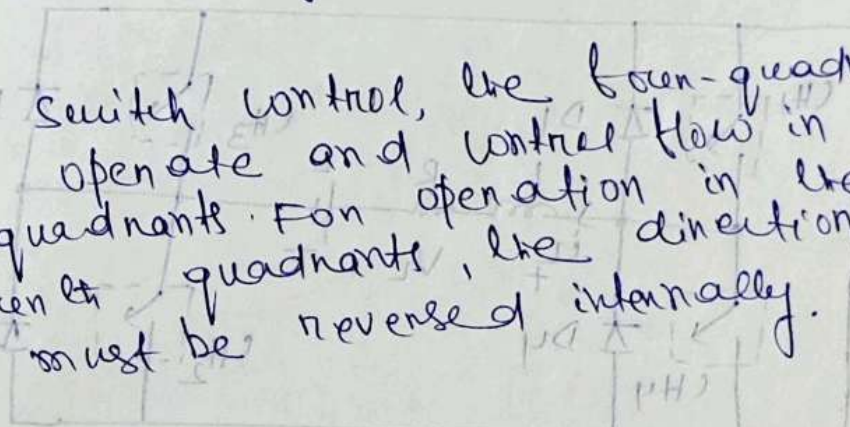 switch control, the four-quad
operate and control flow in
quadrants. For operation in the
quadrants, the direction
must be reversed internally.
CH4